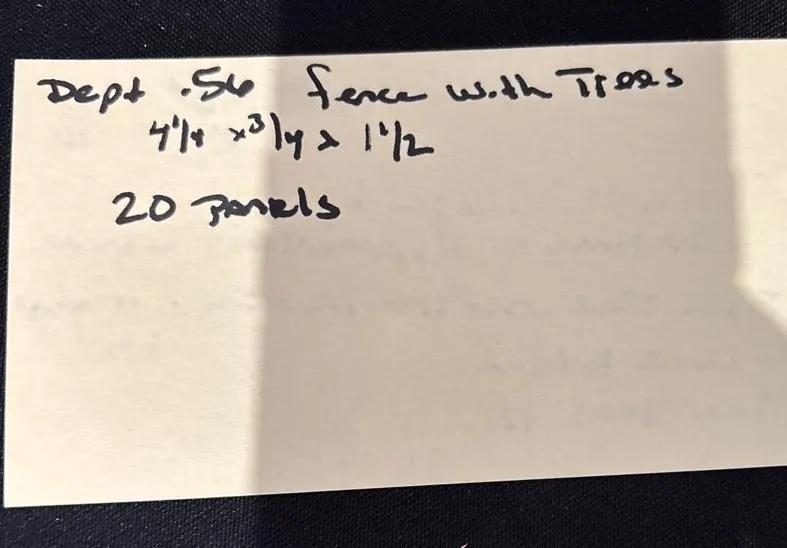 Dept .56 fence with Trees
4 1/4 x 3/4 x 1 1/2
20 Panels